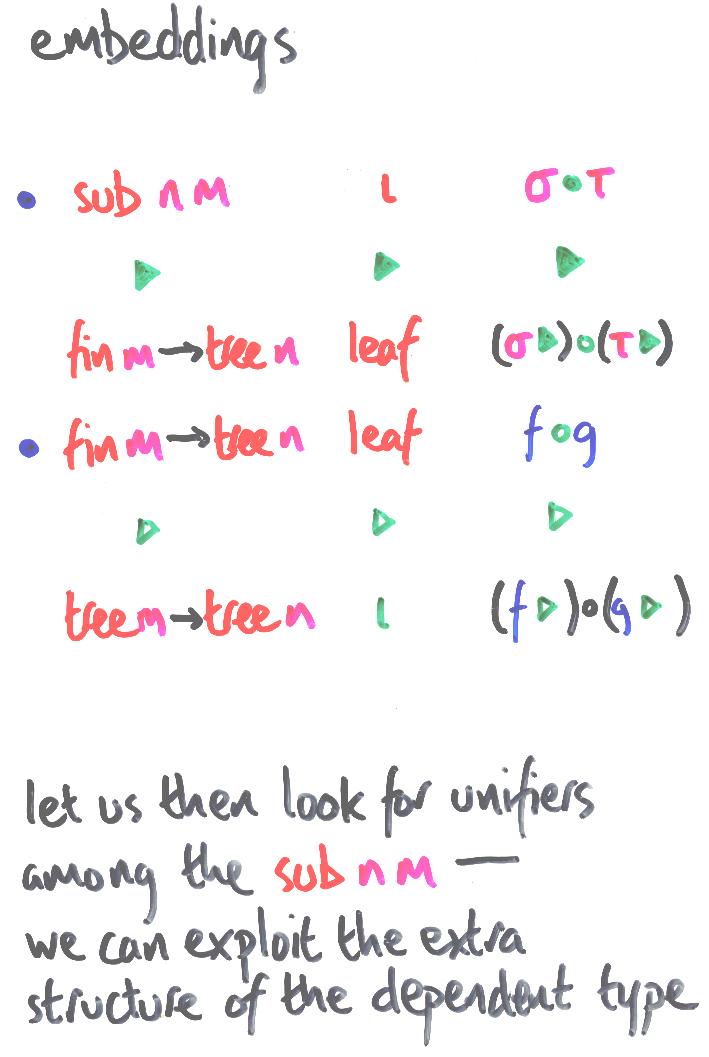 embeddings
• sub n m ι σ•τ
▶ ▶ ▶
fin m → tree n leaf (σ▶)∘(τ▶)
• fin m → tree n leaf f∘g
▷ ▷ ▷
tree m → tree n ι (f▷)∘(g▷)
let us then look for unifiers
among the sub n m —
we can exploit the extra
structure of the dependent type